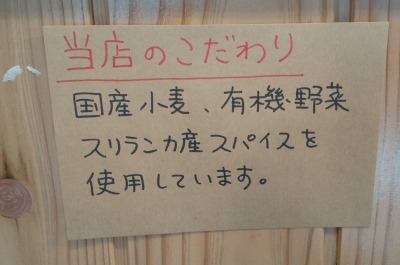 当店のこだわり
国産小麦、有機野菜
スリランカ産スパイスを
使用しています。